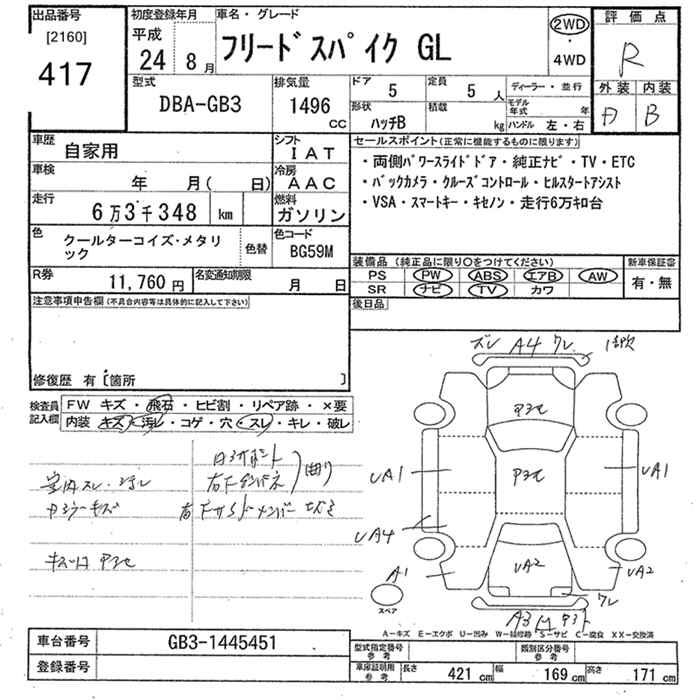 出品番号
[2160]
417
初度登録年月
平成
24 8月
車名・グレード
フリードスパイク GL
2WD
・
4WD
評価点
R
外装 内装
B
型式
DBA-GB3
排気量
1496
CC
ドア 5
定員 5人
ディーラー・並行
形状 ハッチB
積載 kg
モデル年式 年
ハンドル 左・右
車歴
自家用
シフト
IAT
セールスポイント(正常に機能するものに限ります)
・両側パワースライドドア・純正ナビ・TV・ETC
・バックカメラ・クルーズコントロール・ヒルスタートアシスト
・VSA・スマートキー・キセノン・走行6万キロ台
車検
年 月( 日)
冷房
AAC
走行
6万3千348 km
燃料
ガソリン
色
クールターコイズ・メタリック
色替
色コード
BG59M
装備品(純正品に限り○をつけてください)
PS PW ABS エアB AW
SR ナビ TV カワ
新車保証書
有・無
R券
11,760円
名変通知期限
月 日
後日品
注意事項申告欄(不具合内容等は具体的に記入して下さい)
修復歴 有〔箇所 〕
検査員記入欄
FW キズ・飛石・ヒビ割・リペア跡・×要
内装 キズ・汚レ・コゲ・穴・スレ・キレ・破レ
ズレ A4 ワレ
UA1
UA1
UA4
UA2
UA2
A1
ワレ
A3
曲り
スペア
A-キズ E-エクボ U-凹み W-補修跡 S-サビ C-腐食 XX-交換済
車台番号
GB3-1445451
登録番号
型式指定番号 参考
類別区分番号 参考
車庫証明用 参考
長さ 421 cm
幅 169 cm
高さ 171 cm